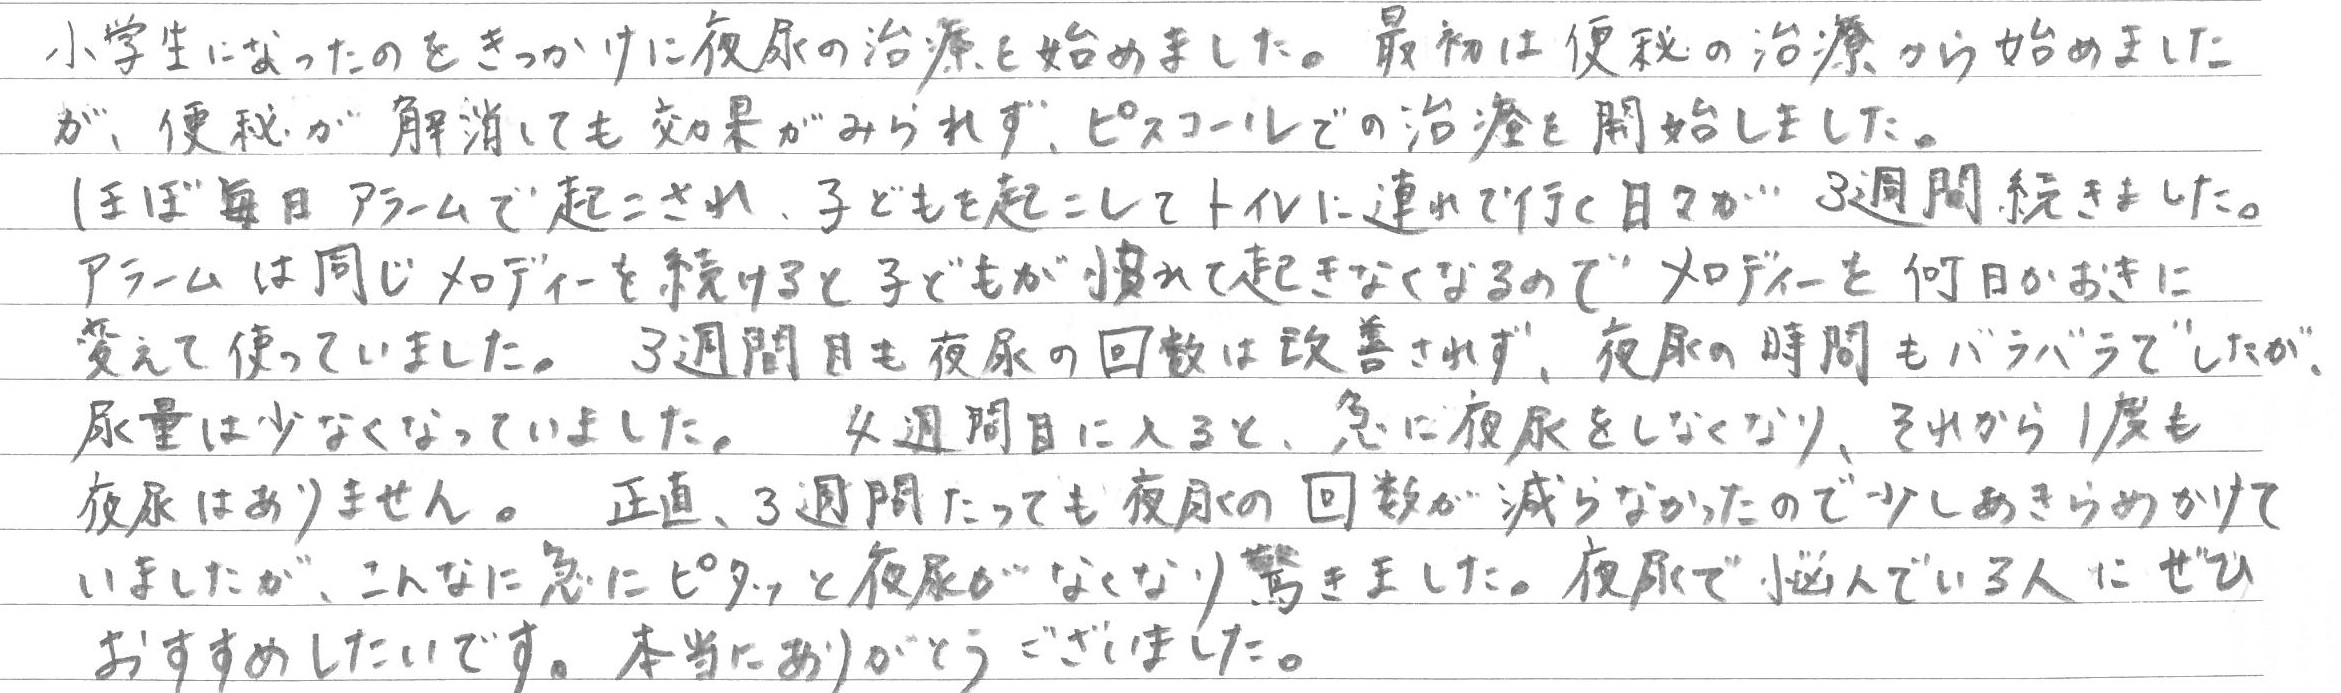 小学生になったのをきっかけに夜尿の治療を始めました。最初は便秘の治療から始めました
が、便秘が解消しても効果がみられず、ピスコールでの治療を開始しました。
ほぼ毎日アラームで起こされ、子どもを起こしてトイレに連れて行く日々が3週間続きました。
アラームは同じメロディーを続けると子どもが慣れて起きなくなるのでメロディーを何日かおきに
変えて使っていました。 3週間目も夜尿の回数は改善されず、夜尿の時間もバラバラでしたが、
尿量は少なくなっていました。 4週間目に入ると、急に夜尿をしなくなり、それから1度も
夜尿はありません。 正直、3週間たっても夜尿の回数が減らなかったので少しあきらめかけて
いましたが、こんなに急にピタッと夜尿がなくなり驚きました。夜尿で悩んでいる人にぜひ
おすすめしたいです。本当にありがとうございました。